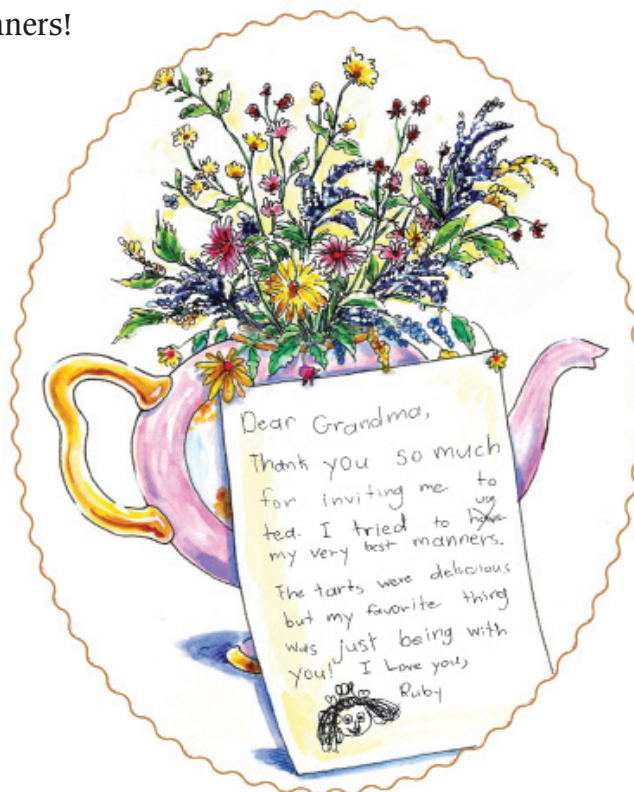 nners!
Dear Grandma,
Thank you so much
for inviting me to
tea. I tried to use
my very best manners.
The tarts were delicious
but my favorite thing
was just being with
you! I Love you,
Ruby